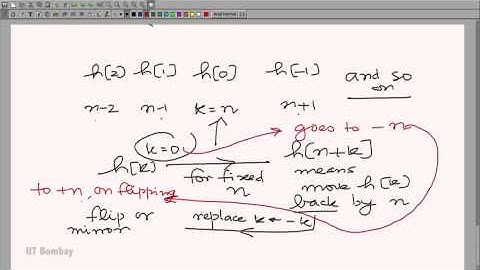 h[2] h[1] h[0] h[-1] and so on
n-2 n-1 k=n n+1
k=0 goes to -n
h[k] for fixed n h[n+k]
means
to +n, on flipping move h[k]
back by n
flip or replace k ← -k
mirror
IIT Bombay